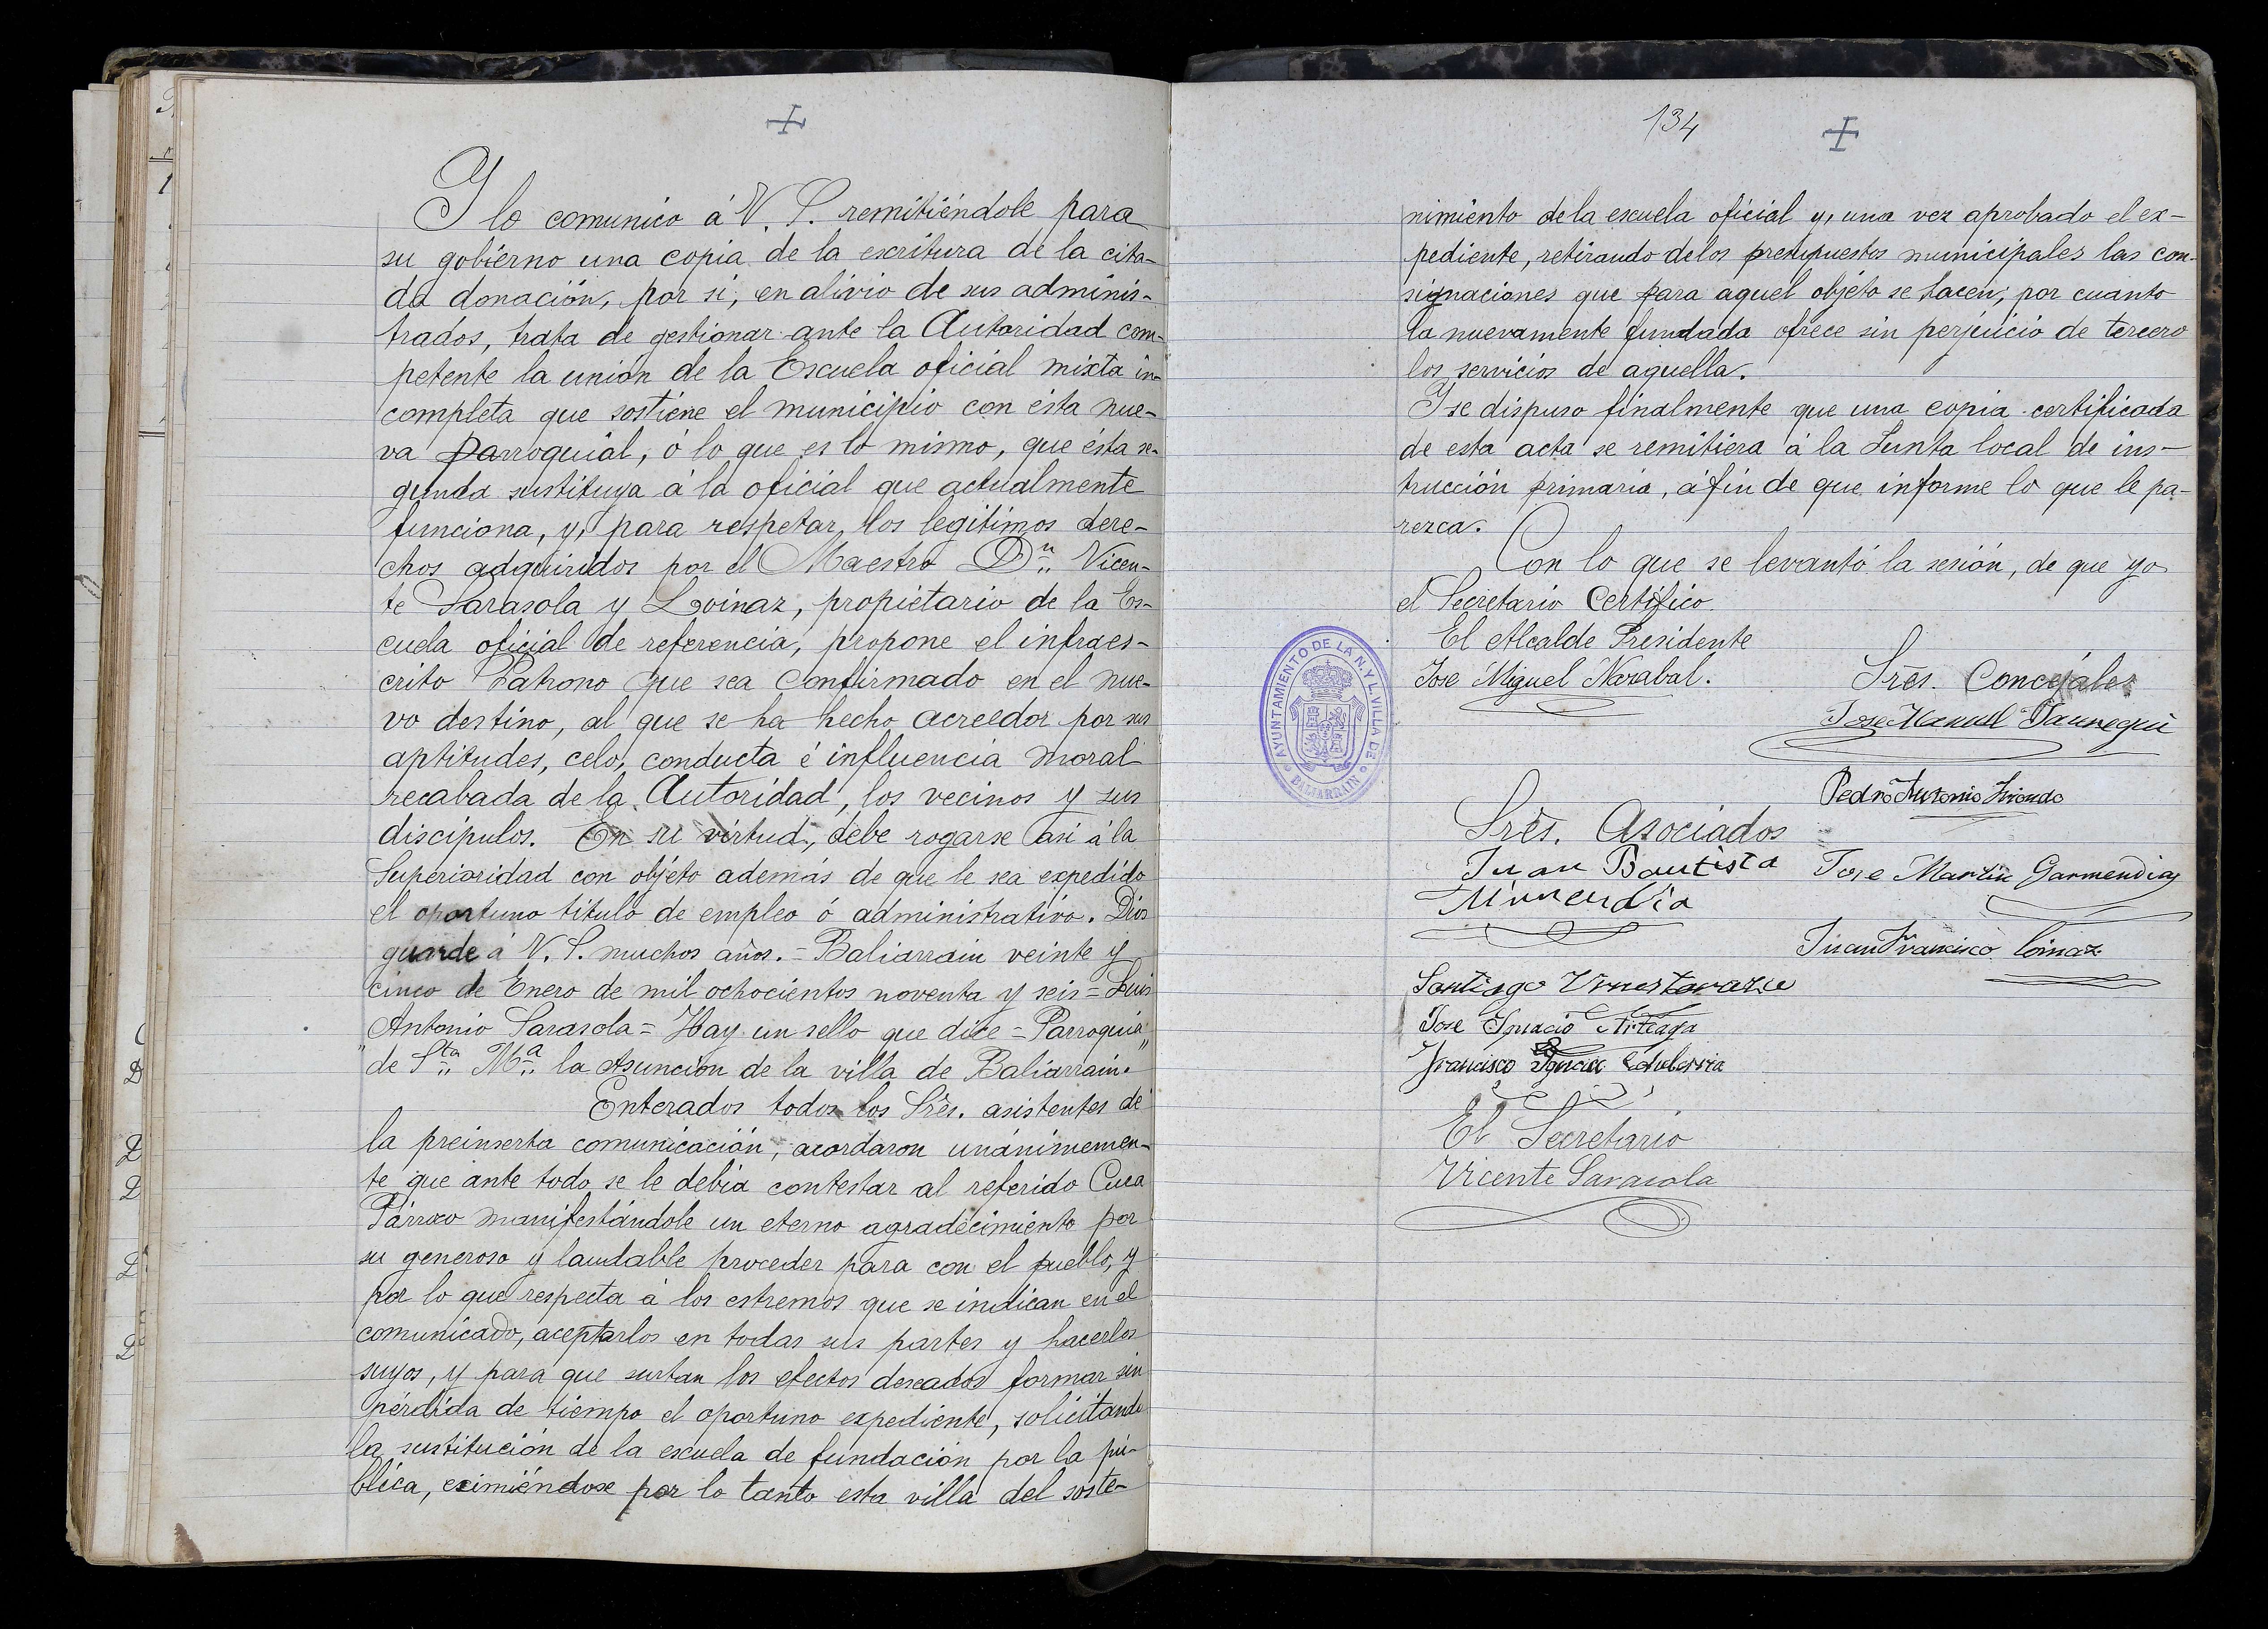 Y lo comunico á V. S. remitiéndole para
su gobierno una copia de la escritura de la cita-
da donación, por si, en alivio de sus adminis-
trados, trata de gestionar ante la Autoridad com-
petente la unión de la Escuela oficial mixta in-
completa que sostiene el municipio con ésta nue-
va parroquial, ó lo que es lo mismo, que ésta se-
gunda sustituya á la oficial que actualmente
funciona, y, para respetar los legitimos dere-
chos adquiridos por el Maestro Dn. Vicen-
te Sarasola y Loinaz, propietario de la Es-
cuela oficial de referencia, propone el infraes-
crito Patrono que sea confirmado en el nue-
vo destino, al que se ha hecho acreedor por sus
aptitudes, celo, conducta é influencia moral
recabada de la Autoridad, los vecinos y sus
discípulos. En su virtud, debe rogarse asi á la
Superioridad con objéto además de que le sea expedido
el oportuno titulo de empleo ó administrativo. Dios
guarde á V. S. muchos años. = Baliarrain veinte y
cinco de Enero de mil ochocientos noventa y seis = Luis
Antonio Sarasola = Hay un sello que dice = Parroquia
"de Sta. Ma. la Asunción de la villa de Baliarrain."
Enterados todos los Srēs. asistentes de
la preinserta comunicación, acordaron unánimemen-
te que ante todo se le debía contestar al referido Cura
Párroco manifestándole un eterno agradecimiento por
su generoso y laudable proceder para con el pueblo, y
por lo que respecta á los estremos que se indican en el
comunicado, aceptarlos en todas sus partes y hacerlos
suyos, y para que surtan los efectos deseados formar sin
pérdida de tiempo el oportuno expediente, solicitando
la sustitución de la escuela de fundación por la pú-
blica, eximiéndose por lo tanto esta villa del soste-
134
nimiento de la escuela oficial y, una vez aprobado el ex-
pediente, retirando de los presupuestos municipales las con-
signaciones que para aquel objéto se hacen; por cuanto
la nuevamente fundada ofrece sin perjuicio de tercero
los servicios de aquella.
Y se dispuso finalmente que una copia certificada
de esta acta se remitiera á la Junta local de ins-
trucción primaria, á fin de que informe lo que le pa-
rezca.
Con lo que se levantó la sesión, de que yo
el Secretario Certifico.
El Alcalde Presidente
Jose Miguel Narabal.
AYUNTAMIENTO DE LA N. Y L. VILLA DE
BALIARRAIN
Srēs. Concejales
Jose Manuel Jauregui
Pedro Antonio Iriondo
Jose Martin Garmendia
Juan Francisco Loinaz
Srēs. Asociados
Juan Bautista
Munendia
Santiago
Jose Ignacio Arteaga
Francisco Ignacio Echeberria
El Secretario
Vicente Sarasola